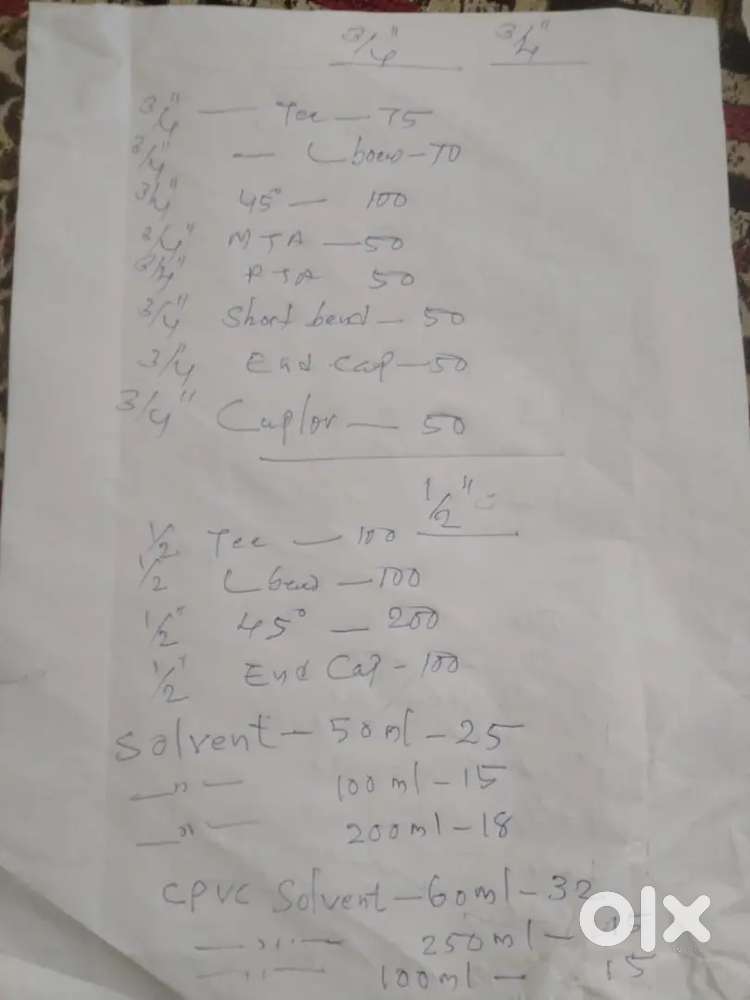 3/4" 3/4"
3/4" — Tee — 75
3/4" — L bend - 70
3/4" 45° — 100
3/4" MTA — 50
3/4" FTA 50
3/4" Short bend — 50
3/4" End Cap — 50
3/4" Cuplor — 50
1/2"
1/2 Tee — 100
1/2 L bend — 100
1/2" 45° — 200
1/2" End Cap - 100
Solvent — 50ml — 25
—"— 100ml — 15
—"— 200ml — 18
CPVC Solvent — 60ml — 32
—"— 250ml —
—"— 100ml — 15
olx